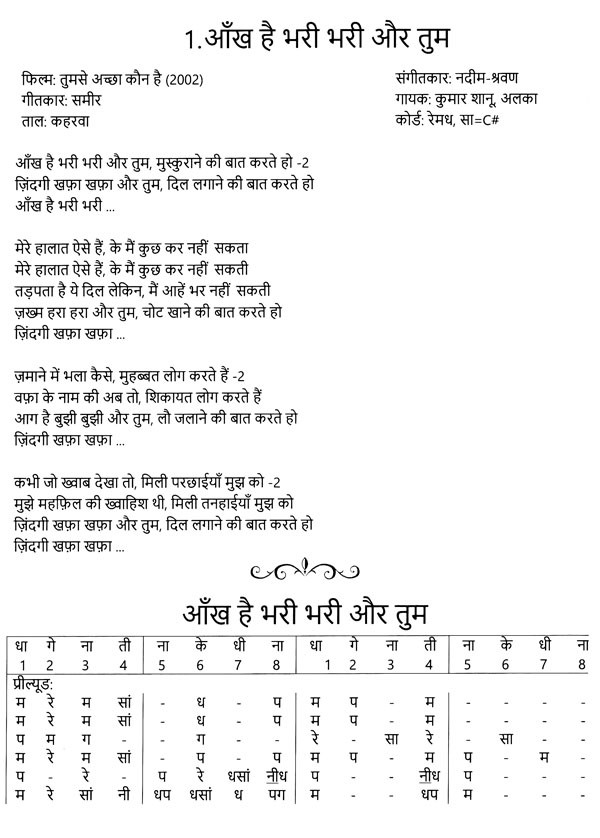 1.आँख है भरी भरी और तुम
फिल्म: तुमसे अच्छा कौन है (2002)
गीतकार: समीर
ताल: कहरवा
संगीतकार: नदीम-श्रवण
गायक: कुमार शानू, अलका
कोर्ड: रेमध, सा=C#
आँख है भरी भरी और तुम, मुस्कुराने की बात करते हो -2
ज़िंदगी खफ़ा खफ़ा और तुम, दिल लगाने की बात करते हो
आँख है भरी भरी ...
मेरे हालात ऐसे हैं, के मैं कुछ कर नहीं सकता
मेरे हालात ऐसे हैं, के मैं कुछ कर नहीं सकती
तड़पता है ये दिल लेकिन, मैं आहें भर नहीं सकती
ज़ख्म हरा हरा और तुम, चोट खाने की बात करते हो
ज़िंदगी खफ़ा खफ़ा ...
ज़माने में भला कैसे, मुहब्बत लोग करते हैं -2
वफ़ा के नाम की अब तो, शिकायत लोग करते हैं
आग है बुझी बुझी और तुम, लौ जलाने की बात करते हो
ज़िंदगी खफ़ा खफ़ा ...
कभी जो ख्वाब देखा तो, मिली परछाईयाँ मुझ को -2
मुझे महफ़िल की ख्वाहिश थी, मिली तनहाईयाँ मुझ को
ज़िंदगी खफ़ा खफ़ा और तुम, दिल लगाने की बात करते हो
ज़िंदगी खफ़ा खफ़ा ...
आँख है भरी भरी और तुम
धा गे ना ती ना के धी ना धा गे ना ती ना के धी ना
1 2 3 4 5 6 7 8 1 2 3 4 5 6 7 8
प्रील्यूड:
म रे म सां - ध - प म प - म - - - -
म रे म सां - ध - प म प - म - - - -
प म ग - - ग - - रे - सा रे - सा - -
म रे म सां - प - प म प - म प - म -
प - रे - प रे धसां नीध प - - नीध प - - -
म रे सां नी धप धसां ध पग म - - धप म - - -